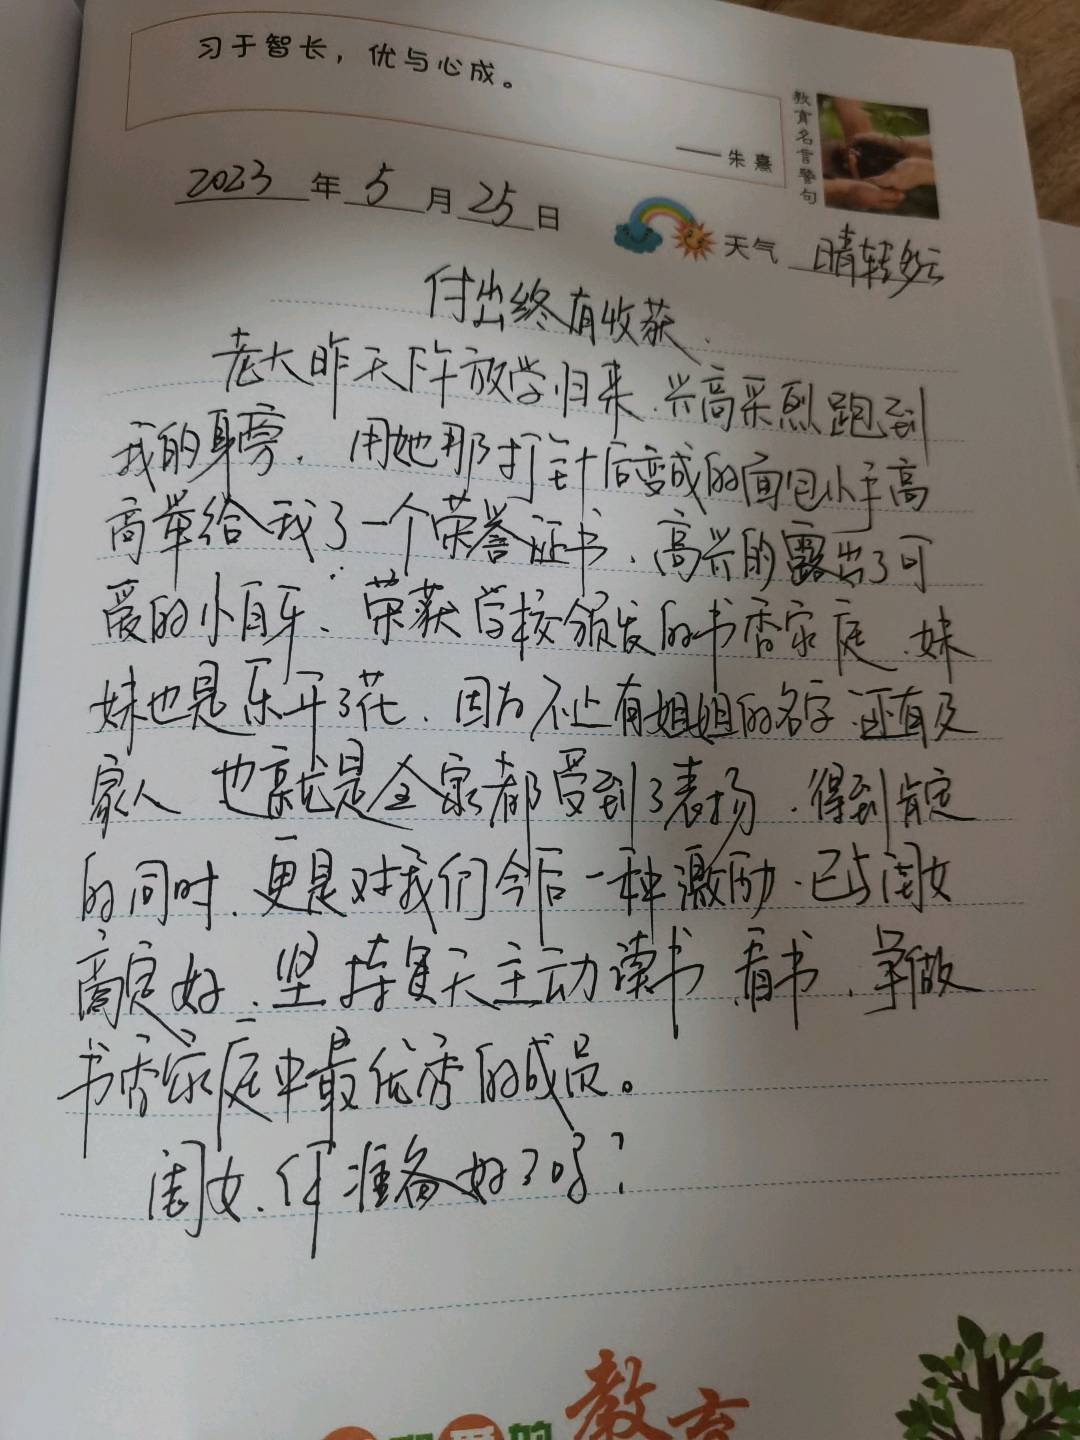 习于智长，优与心成。
——朱熹
教育名言警句
2023年5月25日
天气 晴转多云
付出终有收获.
老大昨天下午放学归来、兴高采烈跑到
我的身旁、用她那打针后变成的面包小手高
高举给我了一个荣誉证书、高兴的露出了可
爱的小白牙、荣获学校颁发的书香家庭、妹
妹也是乐开了花、因为不止有姐姐的名字、还有及
家人 也就是全家都受到了表扬、得到肯定
的同时、更是对我们今后一种激励、已与闺女
商定好、坚持每天主动读书、看书、争做
书香家庭中最优秀的成员。
闺女、你准备好了吗？
爱的教育